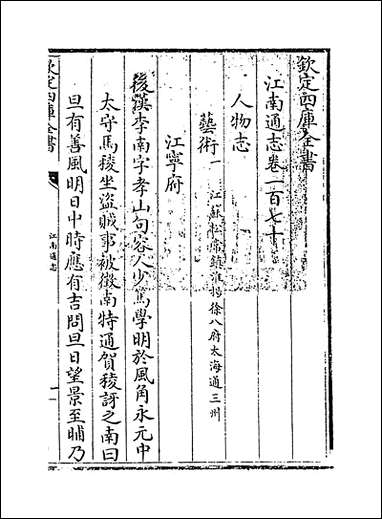 欽定四庫全書
江南通志卷一百七十
人物志
藝術一 江蘇松常鎮淮揚徐八府太海通三州
江寧府
後漢李南字孝山句容人少篤學明於風角永元中
太守馬稜坐盜賊事被徵南特通賀稜訝之南曰
旦有善風明日中時應有吉問旦日望景至晡乃
欽定四庫全書
江南通志
一